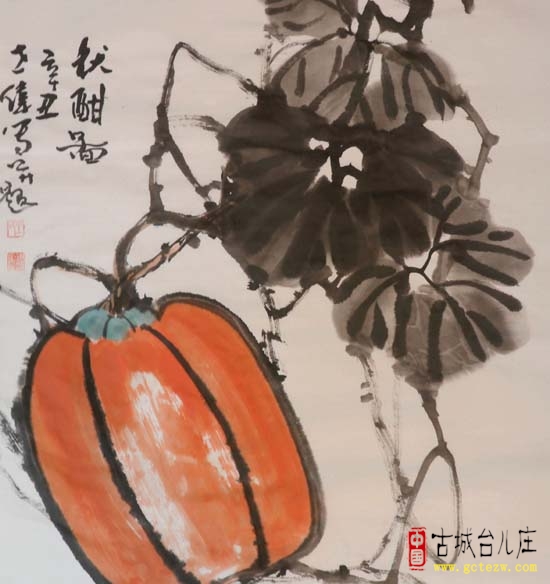 秋酣图
辛丑
志健写并题
中国
古城台儿庄
www.gctezw.com